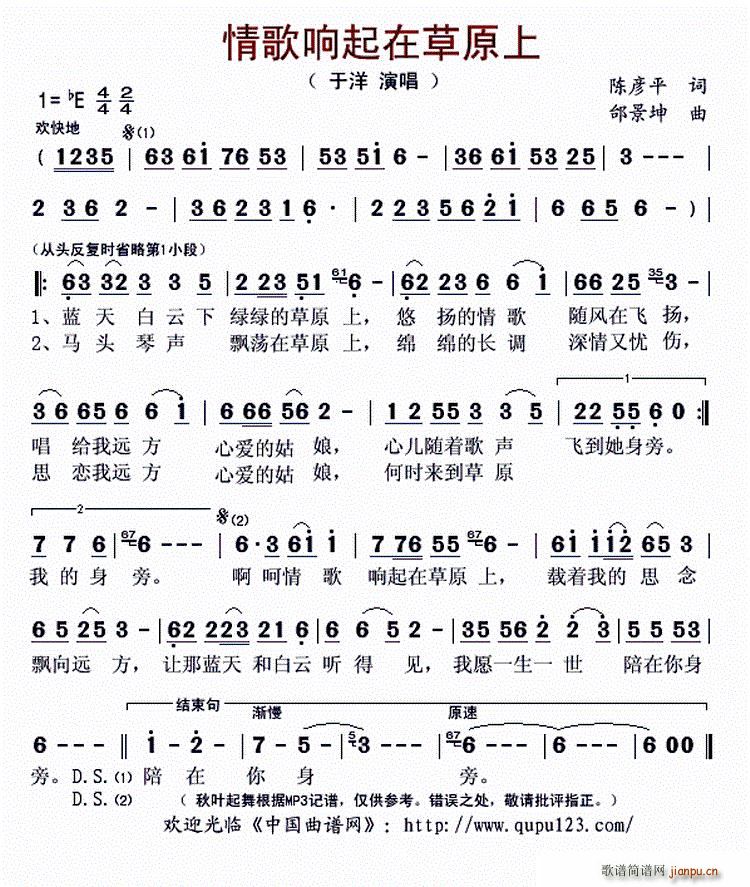 情歌响起在草原上
（ 于洋 演唱 ）
1=♭E 4/4 2/4
陈彦平 词
邰景坤 曲
欢快地
𝄋(1)
( 1235 | 63 61 76 53 | 53 51 6 - | 36 61 53 25 | 3 - - - |
2 36 2 - | 36 23 1 6 · | 2 23 56 21 | 6 65 6 - ) |
（从头反复时省略第1小段）
‖: 63 32 3 3 5 | 2 23 51 61 6 - | 62 23 6 61 | 66 25 35 3 - |
1、蓝 天 白 云 下 绿绿的草原 上， 悠 扬的情 歌 随风在飞 扬，
2、马 头 琴 声 飘荡在草原 上， 绵 绵的长 调 深情又忧 伤，
1
36 65 6 61 | 6 66 56 2 - | 12 55 3 35 | 22 55 6 0 :‖
唱 给我远 方 心爱的姑 娘， 心儿随着歌 声 飞到她身 旁。
思 恋我远 方 心爱的姑 娘， 何时来到草 原
2
𝄋(2)
7 7 6 | 67 6 - - - | 6·3 61 1 | 7 76 55 67 6 - | 61 112 65 3 |
我 的 身 旁。 啊 呵情 歌 响起在草原 上， 载着我的 思 念
65 25 3 - | 62 223 21 6 | 5 6 6 - | 35 56 2 2 3 | 5 5 53 |
飘向远 方， 让那蓝天 和白云 听 得 见， 我愿一生一 世 陪在你身
结束句
渐慢
原速
6 - - - ‖ 1 - 2 - | 7 - 5 - | 5 3 - - - | 67 6 - - - | 6 - - - | 6 0 0 ‖
旁。D.S.(1) 陪 在 你 身 旁。
D.S.(2) （ 秋叶起舞根据MP3记谱，仅供参考。错误之处，敬请批评指正。）
欢迎光临《中国曲谱网》：http://www.qupu123.com/
歌谱简谱网
jianpu.cn